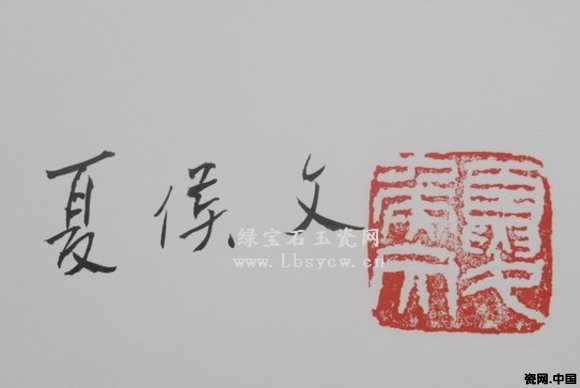 夏侯文
绿宝石玉瓷网
www.Lbsycw.cn
瓷网.中国